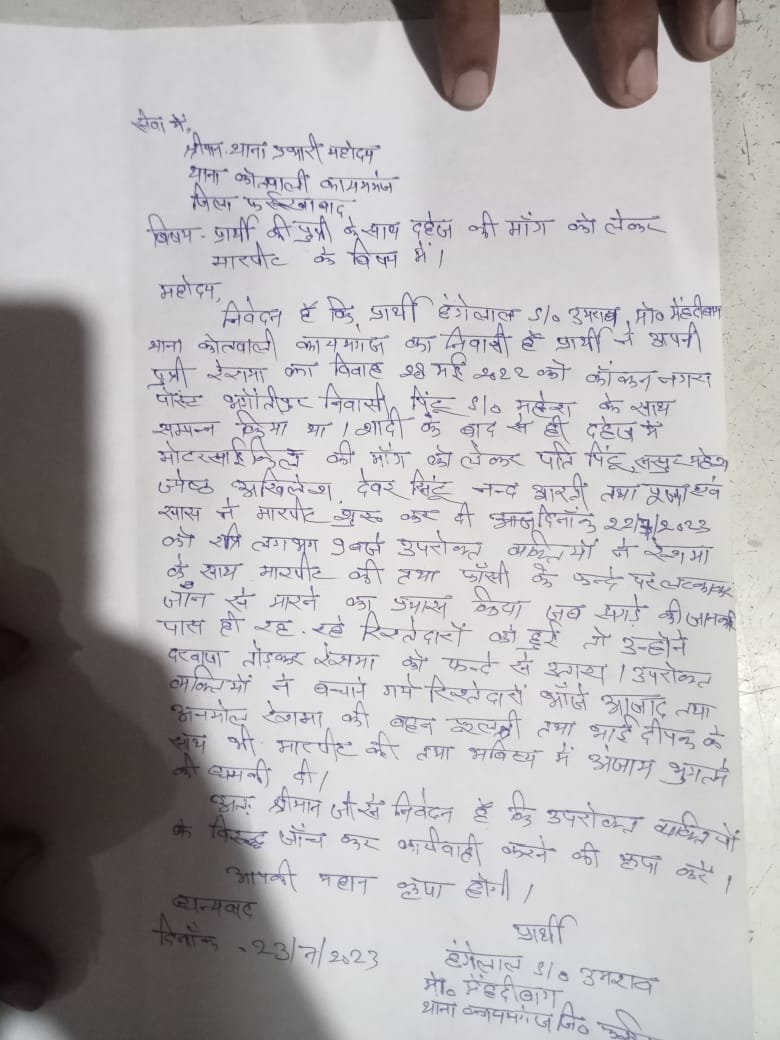 सेवा में,
श्रीमान थाना प्रभारी महोदय
थाना कोतवाली कायमगंज
जिला फर्रूखाबाद
विषय - प्रार्थी की पुत्री के साथ दहेज की माँग को लेकर
मारपीट के विषय में।
महोदय,
निवेदन है कि प्रार्थी हंगेलाल S/o उमराव मो० मेंहदीबाग
थाना कोतवाली कायमगंज का निवासी है प्रार्थी ने अपनी
पुत्री रेशमा का विवाह 28 मई 2022 को काँकन नगरा
पोस्ट भगौतीपुर निवासी पिंटू S/o महेश के साथ
सम्पन्न किया था। शादी के बाद से ही दहेज में
मोटरसाईकिल की माँग को लेकर पति पिंटू, ससुर महेश
ज्येष्ठ अखिलेश, देवर नन्द आरती तथा पूजा एवं
सास ने मारपीट शुरू कर दी आज दिनाँक 22/7/2023
को रात्रि लगभग 9 बजे उपरोक्त व्यक्तियों ने रेशमा
के साथ मारपीट की तथा फाँसी के फन्दे पर लटकाकर
जान से मारने का प्रयास किया जब झगड़े की जानकारी
पास ही रह रहे रिश्तेदारों को हुई तो उन्होंने
दरवाजा तोडकर रेशमा को फन्दे से उतारा। उपरोक्त
व्यक्तियों ने बचाने गये रिश्तेदारों आजाद तथा
अनमोल रेशमा की बहन तथा भाई दीपक के
साथ भी मारपीट की तथा भविष्य में अंजाम भुगतने
की धमकी दी।
अतः श्रीमान जी से निवेदन है कि उपरोक्त व्यक्तियों
के विरूद्ध जाँच कर कार्यवाही करने की कृपा करें।
आपकी महान कृपा होगी।
धन्यवाद
दिनाँक - 23/7/2023
प्रार्थी
हंगेलाल S/o उमराव
मो० मेंहदीबाग
थाना कायमगंज जि०